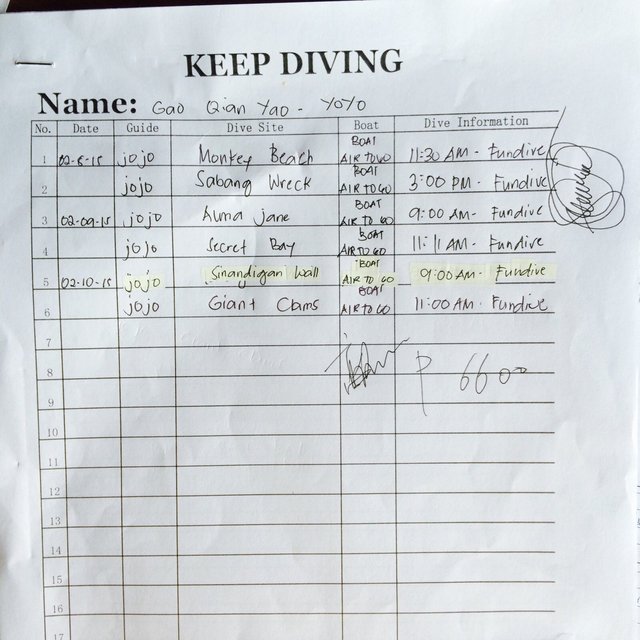 KEEP DIVING
Name: Gao Qian Yao - YOYO
No. Date Guide Dive Site Boat Dive Information
1 02-8-15 jojo Monkey Beach BOAT AIR TO GO 11:30 AM - Fundive
2 jojo Sabang Wreck BOAT AIR TO GO 3:00 PM - Fundive
3 02-09-15 jojo Luma Jane BOAT AIR TO GO 9:00 AM - Fundive
4 jojo Secret Bay BOAT AIR TO GO 11:11 AM - Fundive
5 02-10-15 jojo Sinandigan Wall BOAT AIR TO GO 9:00 AM - Fundive
6 jojo Giant Clams BOAT AIR TO GO 11:00 AM - Fundive
7
8 P 6600
9
10
11
12
13
14
15
16
17